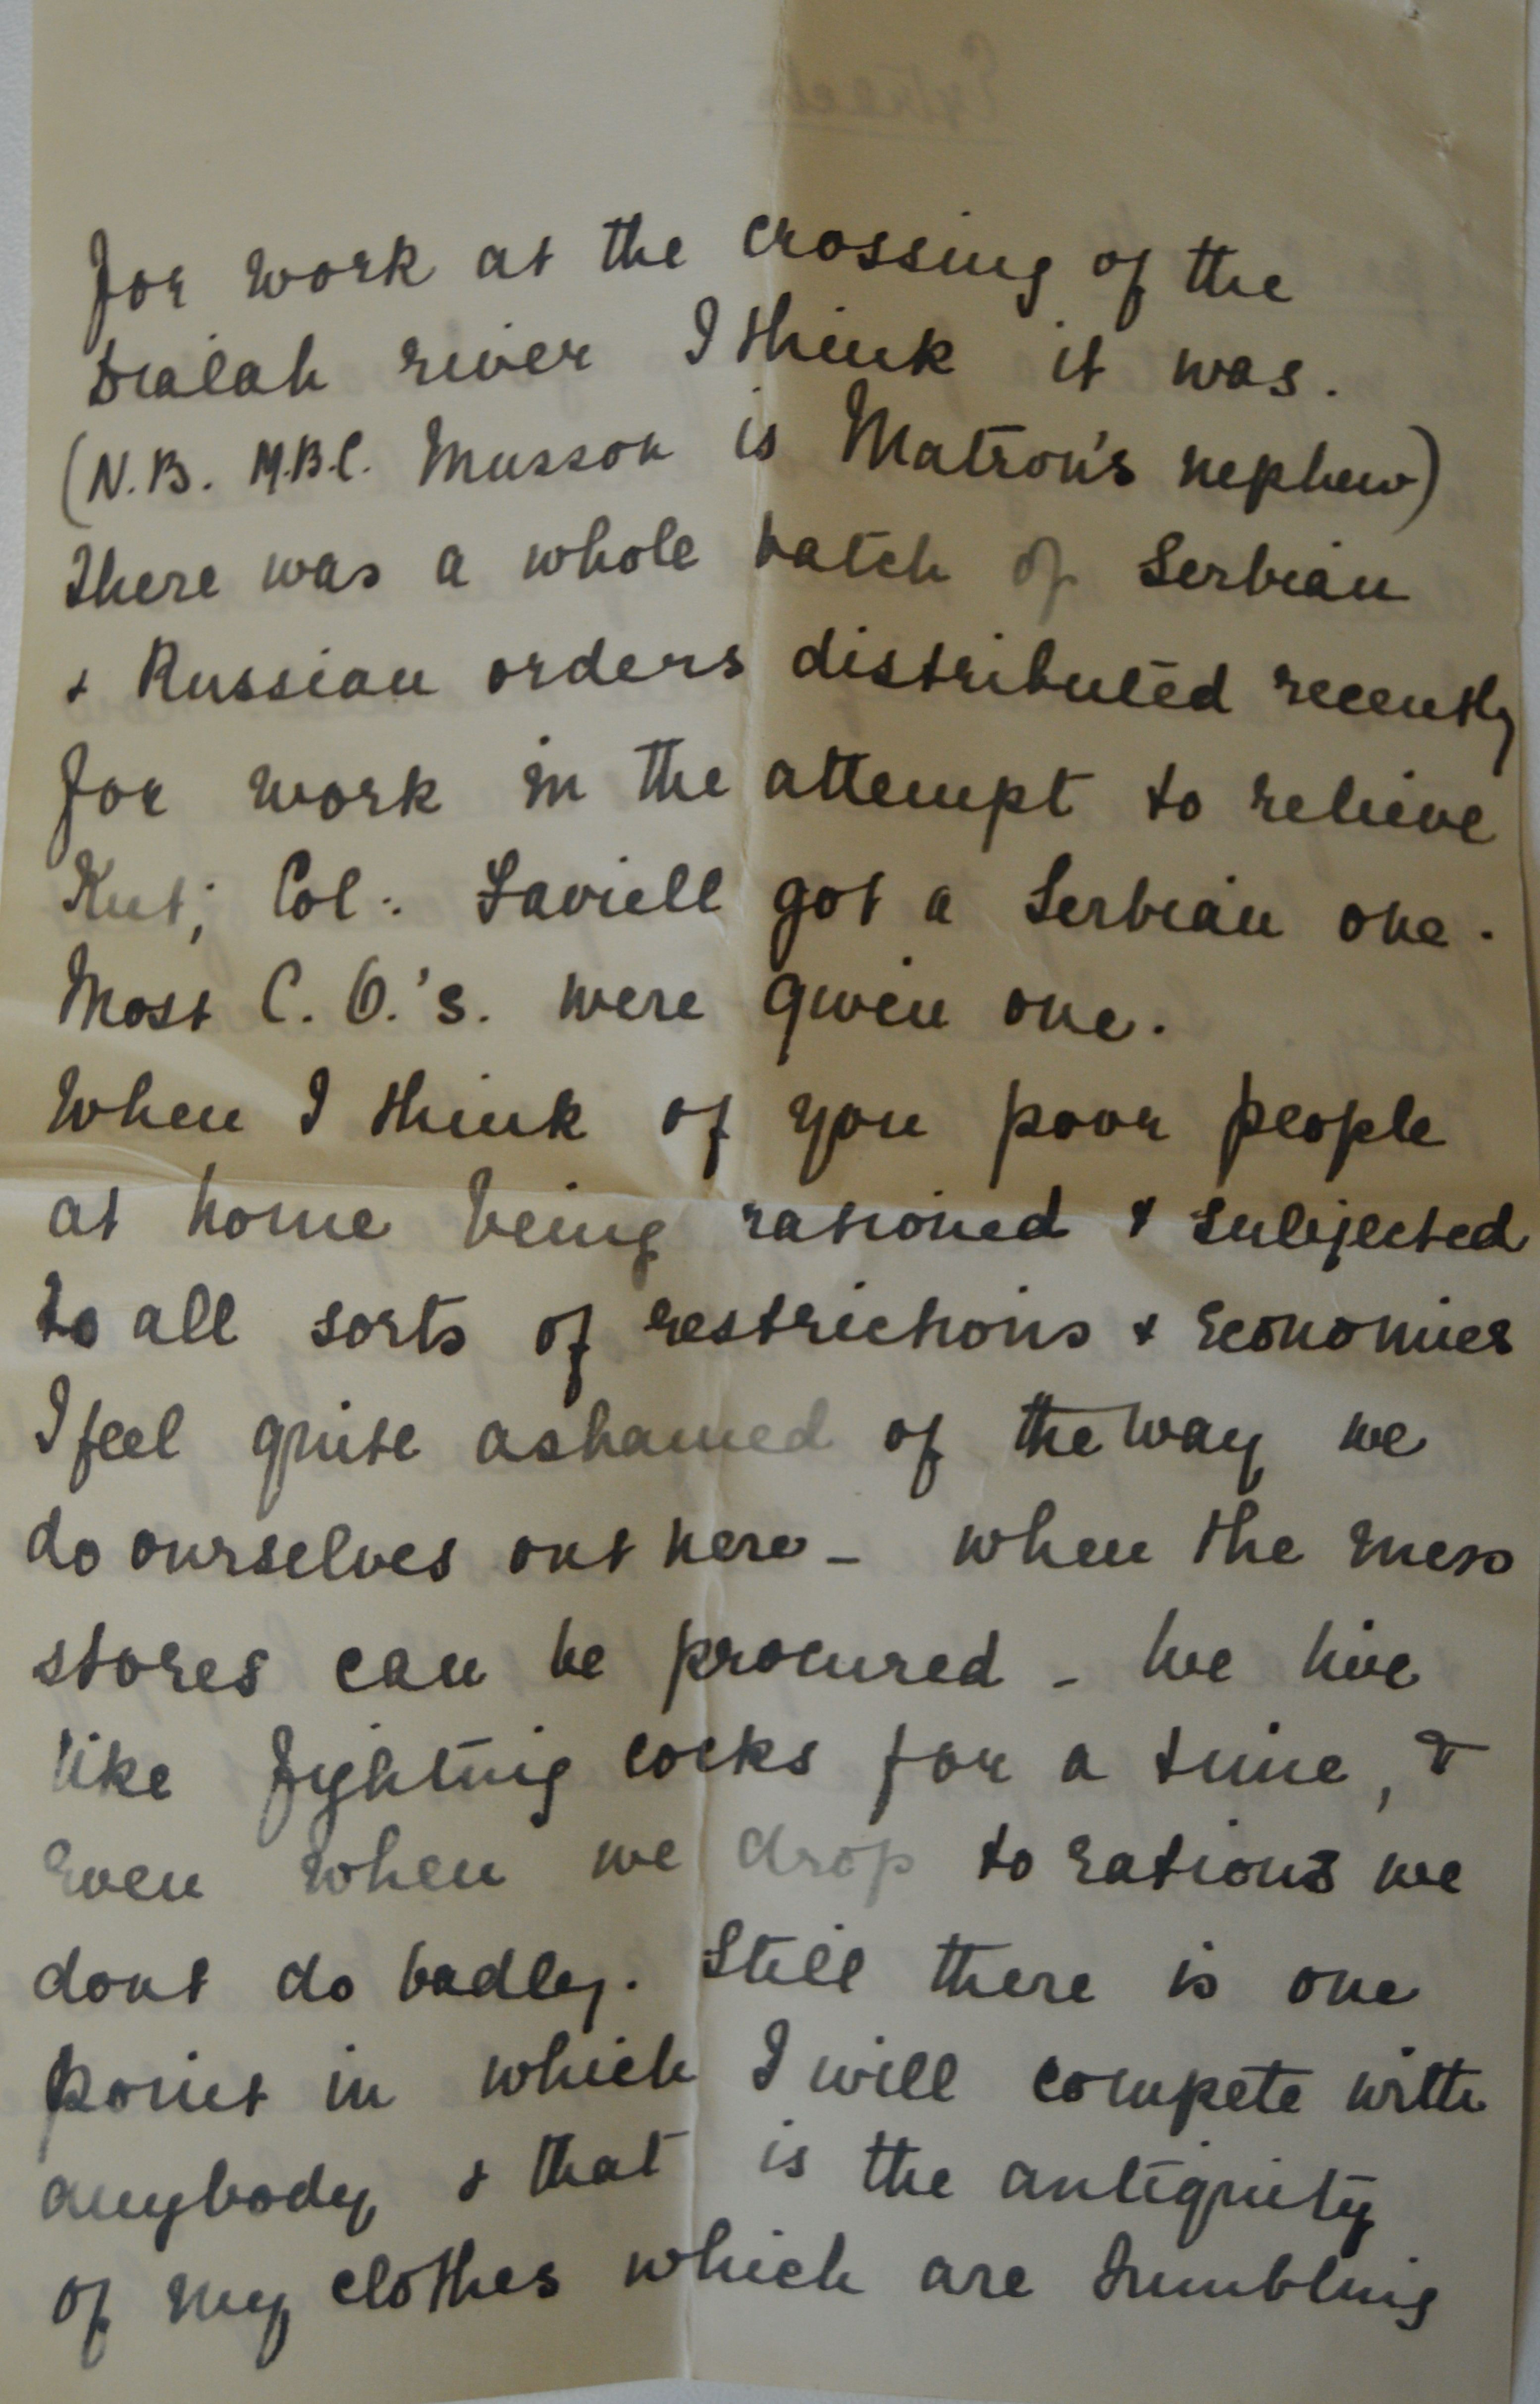 for work at the crossing of the
Dialah river I think it was.
(N.B. M.B.C. Musson is Matron's nephew)
There was a whole batch of Serbian
& Russian orders distributed recently
for work in the attempt to relieve
Kut; Col: Saviell got a Serbian one.
Most C.O.'s. were given one.
When I think of you poor people
at home being rationed & subjected
to all sorts of restrictions & economies
I feel quite ashamed of the way we
do ourselves out here - when the mess
stores can be procured - we live
like fighting cocks for a time, &
even when we drop to rations we
dont do badly. Still there is one
point in which I will compete with
anybody & that is the antiquity
of my clothes which are tumbling